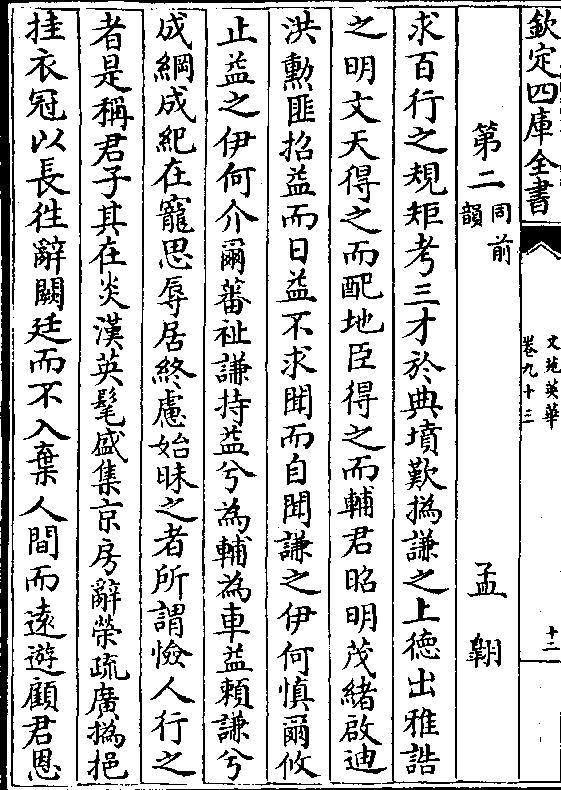 欽定四庫全書
文苑英華
卷九十三
十二
第二
同前
韻
孟翱
求百行之規矩考三才於典墳歎撝謙之上德出雅誥
之明文天得之而配地臣得之而輔君昭明茂緒啟迪
洪勲匪招益而日益不求聞而自聞謙之伊何慎爾攸
止益之伊何介爾蕃祉謙持益兮為輔為車益頼謙兮
成綱成紀在寵思辱居終慮始昧之者所謂憸人行之
者是稱君子其在炎漢英髦盛集京房辭榮疏廣撝挹
挂衣冠以長徃辭闕廷而不入棄人間而逺遊顧君恩